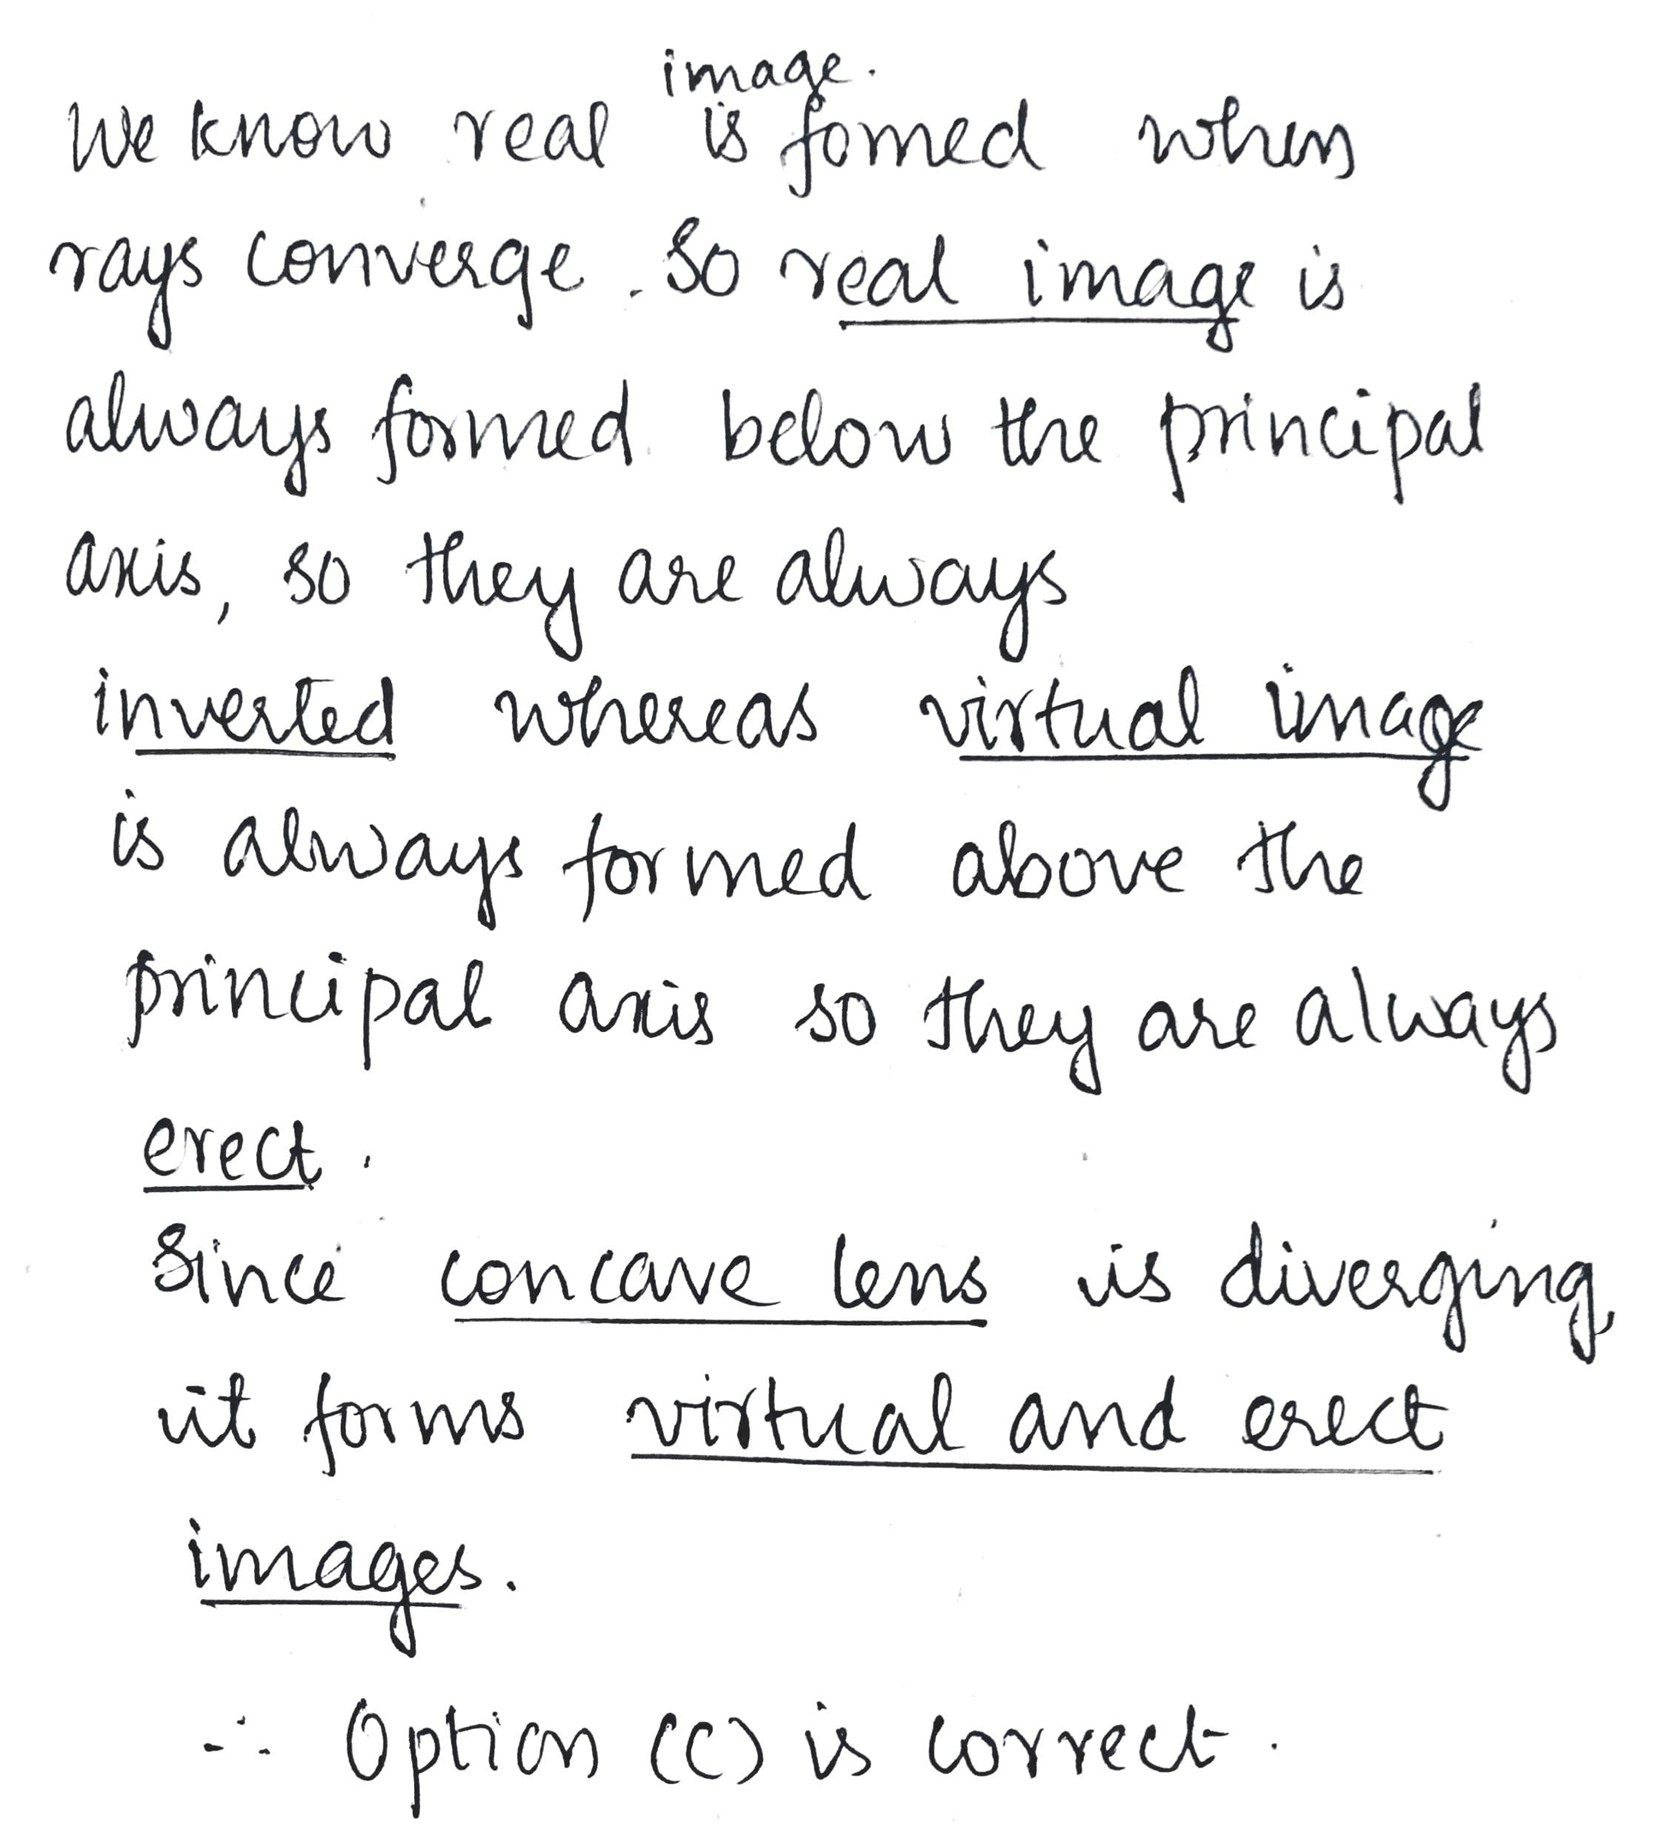 image.
We know real is fomed when
rays converge. So real image is
always formed below the principal
axis, so they are always
inverted whereas virtual image
is always formed above the
principal axis so they are always
erect.
Since concave lens is diverging,
it forms virtual and erect
images.
∴ Option (C) is correct.